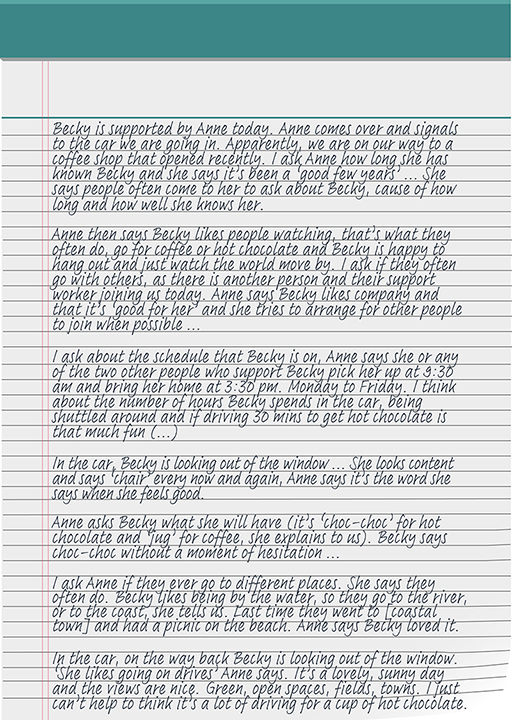 Becky is supported by Anne today. Anne comes over and signals
to the car we are going in. Apparently, we are on our way to a
coffee shop that opened recently. I ask Anne how long she has
known Becky and she says it's been a 'good few years' ... She
says people often come to her to ask about Becky, cause of how
long and how well she knows her.
Anne then says Becky likes people watching, that's what they
often do, go for coffee or hot chocolate and Becky is happy to
hang out and just watch the world move by. I ask if they often
go with others, as there is another person and their support
worker joining us today. Anne says Becky likes company and
that it's 'good for her' and she tries to arrange for other people
to join when possible ...
I ask about the schedule that Becky is on, Anne says she or any
of the two other people who support Becky pick her up at 9:30
am and bring her home at 3:30 pm. Monday to Friday. I think
about the number of hours Becky spends in the car, being
shuttled around and if driving 30 mins to get hot chocolate is
that much fun (...)
In the car, Becky is looking out of the window ... She looks content
and says 'chair' every now and again, Anne says it's the word she
says when she feels good.
Anne asks Becky what she will have (it's 'choc-choc' for hot
chocolate and 'jug' for coffee, she explains to us). Becky says
choc-choc without a moment of hesitation ...
I ask Anne if they ever go to different places. She says they
often do. Becky likes being by the water, so they go to the river,
or to the coast, she tells us. Last time they went to [coastal
town] and had a picnic on the beach. Anne says Becky loved it.
In the car, on the way back Becky is looking out of the window.
'She likes going on drives' Anne says. It's a lovely, sunny day
and the views are nice. Green, open spaces, fields, towns. I just
can't help to think it's a lot of driving for a cup of hot chocolate.